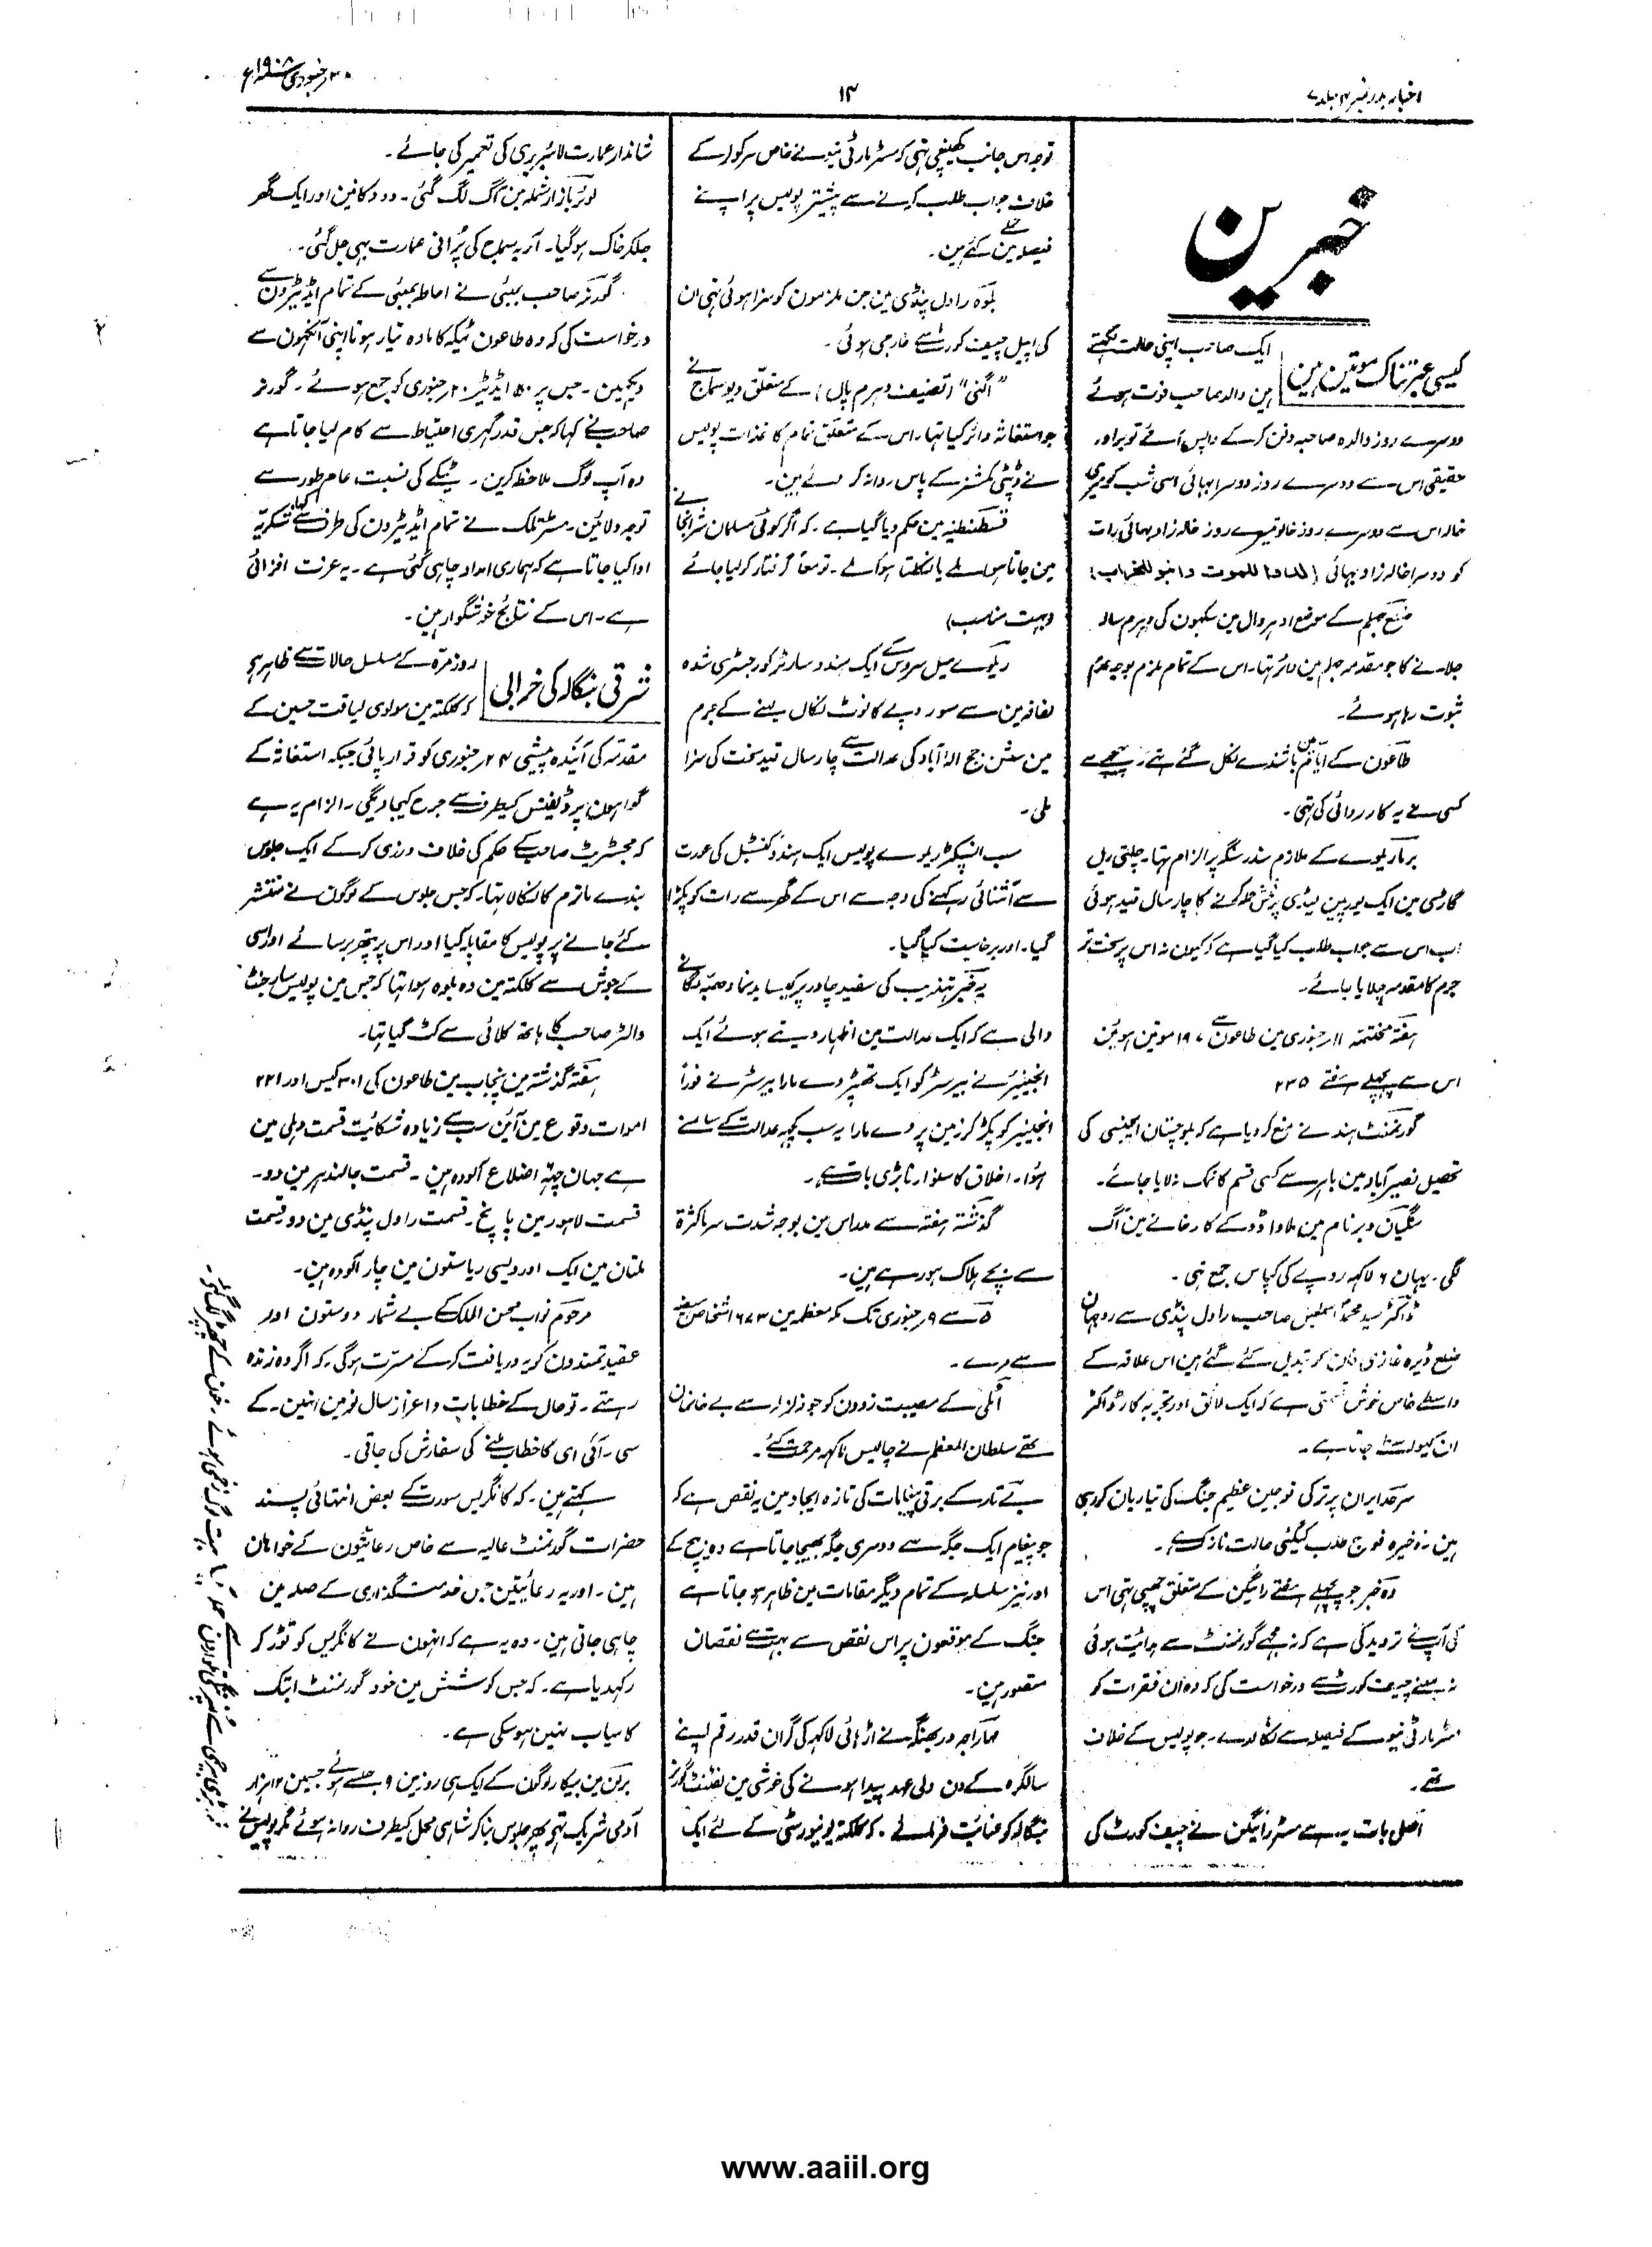 اخبار بدر نمبر ۴ جلد ۷
۱۳
۳۰ جنوری ۱۹۰۸ء
خبرین
کیسی عبرتناک موتین ہین
ایک صاحب اپنی حالت لکھتے
ہین والد صاحب فوت ہوئے
دوسرے روز والدہ صاحبہ دفن کرکے واپس آئے تو برادر
حقیقی اس سے دوسرے روز دوسرا بہائی اسی شب کو میری
خالہ اس سے دوسرے روز خالو تیسرے روز خالہ زاد بہائی رات
کو دوسرا خالہ زاد بہائی (للدوا للموت وابنو للخراب)
ضلع جہلم کے موضع ادہروال مین سکہون کی دہرم سالہ
جلانے کا جو مقدمہ جہلم مین دائر تہا۔ اس کے تمام ملزم بوجہ عدم
ثبوت رہا ہوئے۔
طاعون کے ایام مین باشندے نکل گئے تہے پیچہے سے
کسی نے یہ کارروائی کی تہی۔
برما ریلوے کے ملازم سندر سنگہ پر الزام تہا۔ چلتی ریل
گاڑی مین ایک یورپین لیڈی پر فحش حملہ کرنے کا چار سال قید ہوئی
اب اس سے جواب طلب کیا گیا ہے کہ کیون نہ اس پر سخت تر
جرم کا مقدمہ چلایا جائے۔
ہفتہ مختتمہ ۱۱ جنوری مین طاعون سے ۱۹۷ موتین ہوئین
اس سے پہلے ہفتے ۲۳۵
گورنمنٹ ہند نے منع کردیا ہے کہ بلوچستان ایجنسی کی
تحصیل نصیر آباد مین باہر سے کسی قسم کا نمک نہ لایا جائے۔
سنگیان ویرنام مین ملاواڈو کے کارخانے مین آگ
لگی۔ یہان ۶ لاکہہ روپے کی کپاس جمع تہی۔
ڈاکٹر سید محمد اسمٰعیل صاحب راولپنڈی سے روجہان
ضلع ڈیرہ غازی خان کو تبدیل کئے گئے ہین اس علاقہ کے
واسطے خاص خوش قسمتی ہے کہ ایک لائق اور تجربہ کار ڈاکٹر
ان کیواسطے جاتا ہے۔
سرحد ایران پر ترکی فوجین عظیم جنگ کی تیاریان کررہی
ہین۔ ذخیرہ فوج طلب کیگئی حالت نازک ہے۔
وہ خبر جو پچہلے ہفتے رائیگن کے متعلق چہپی تہی اس
کی آپ نے تردید کی ہے کہ نہ مجہے گورنمنٹ سے ہدائیت ہوئی
نہ مینے چیف کورٹ سے درخواست کی کہ وہ ان فقرات کو
مسٹر مارٹی نیو کے فیصلہ سے نکالدے۔ جو پولیس کے خلاف
تہے۔
اصلی بات یہ ہے مسٹر رائیگن نے چیف کورٹ کی
توجہ اس جانب کہینچی تہی کہ مسٹر مارٹی نیو نے خاص سرکولر کے
خلاف جواب طلب کرنے سے پیشتر پولیس پر اپنے
فیصلہ مین حملے کئے ہین۔
بلوہ راولپنڈی مین جن ملزمون کو سزا ہوئی تہی ان
کی اپیل چیف کورٹ سے خارج ہوئی۔
"اگنی" (تصنیف دہرم پال) کے متعلق دیو سماج نے
جو استغاثہ دائر کیا تہا۔ اس کے متعلق تمام کاغذات پولیس
نے ڈپٹی کمشنر کے پاس روانہ کر دئے ہین۔
قسطنطنیہ مین حکم دیا گیا ہے۔ کہ اگر کوئی مسلمان شرابخانے
مین جاتا ملے یا نکلتا ہوا ملے۔ تو معًا گرفتار کرلیا جائے
(بہت مناسب)
ریلوے میل سروس کے ایک ہندو سارٹر کو رجسٹری شدہ
لفافہ مین سے سو روپے کا نوٹ نکال لینے کے جرم
مین سشن جج الہ آباد کی عدالت سے چار سال قید سخت کی سزا
ملی۔
سب انسپکٹر ریلوے پولیس ایک ہندو کنسٹبل کی عورت
سے آشنائی رکہنے کی وجہ سے اس کے گہر سے رات کو پکڑا
گیا۔ اور برخاست کیا گیا۔
یہ خبر تہذیب کی سفید چادر پر کیسا بدنما دہبّہ لگانے
والی ہے کہ ایک عدالت مین اظہار دیتے ہوئے ایک
انجنیئر نے بیرسٹر کو ایک تہپڑ دے مارا بیرسٹر نے فورًا
انجنیئر کو پکڑ کر زمین پر دے مارا یہ سب کچہہ عدالت کے سامنے
ہوا۔ اخلاق کا سنوارنا بڑی بات ہے۔
گذشتہ ہفتہ سے مدراس مین بوجہ شدت سرما کثرۃ
سے بچے ہلاک ہو رہے ہین۔
۵ سے ۹ جنوری تک مکہ معظمہ مین ۶۷۳ اشخاص ہیضہ
سے مرے۔
اٹلی کے مصیبت زدون کو جو زلزلہ سے بے خانمان
تہے سلطان المعظم نے چالیس لاکہہ مرحمت کئے۔
بے تار کے برقی پیغامات کی تازہ ایجاد مین یہ نقص ہے کہ
جو پیغام ایک جگہ سے دوسری جگہ بہیجا جاتا ہے وہ بیچ کے
اور نیز سلسلہ کے تمام دیگر مقامات مین ظاہر ہو جاتا ہے
جنگ کے موقعون پر اس نقص سے بہت سے نقصان
متصور ہین۔
مہاراجہ دربھنگہ نے اڑہائی لاکہہ کی گران قدر رقم اپنے
سالگرہ کے دن ولی عہد پیدا ہونے کی خوشی مین لفٹنٹ گورنر
بنگالہ کو عنائیت فرمائے۔ کہ کلکتہ یونیورسٹی کے لئے ایک
شاندار عمارت لائبریری کی تعمیر کی جائے۔
لوئر بازار شملہ مین آگ لگ گئی۔ دو دکانین اور ایک گہر
جلکر خاک ہوگیا۔ آریہ سماج کی پُرانی عمارت بہی جل گئی۔
گورنر صاحب بمبئی نے احاطہ بمبئی کے تمام ایڈیٹرون سے
درخواست کی کہ وہ طاعون ٹیکہ کا مادہ تیار ہوتا اپنی آنکہون سے
دیکہین۔ جس پر ۵۰ ایڈیٹر ۲۰ جنوری کو جمع ہوئے۔ گورنر
صاحب نے کہا کہ جس قدر گہری احتیاط سے کام لیا جاتا ہے
وہ آپ لوگ ملاحظہ کرین۔ ٹیکے کی نسبت عام طور سے
توجہ دلائین۔ مسٹر تلک نے تمام ایڈیٹرون کی طرف سے کہا شکریہ
ادا کیا جاتا ہے کہ ہماری امداد چاہی گئی ہے۔ یہ عزت افزائی
ہے۔ اس کے نتایج خوشگوار ہین۔
شرقی بنگالہ کی خرابی
روزمرّہ کے مسلسل حالات سے ظاہر ہے
کہ کلکتہ مین مولوی لیاقت حسین کے
مقدمہ کی آئندہ پیشی ۲۴ جنوری کو قرار پائی جبکہ استغاثہ کے
گواہون پر ڈیفنس کیطرف سے جرح کیجاویگی۔ الزام یہ ہے
کہ مجسٹریٹ صاحب کے حکم کی خلاف ورزی کرکے ایک جلوس
بندے ماترم کا نکالا تہا۔ کہ جس جلوس کے لوگون نے منتشر
کئے جانے پر پولیس کا مقابلہ کیا اور اس پر پتھر برسائے اور اسی
کے جوش سے کلکتہ مین وہ بلوہ ہوا تہا کہ جس مین پولیس سارجنٹ
والٹر صاحب کا ہاتھ کلائی سے کٹ گیا تہا۔
ہفتہ گذشتہ مین پنجاب مین طاعون کی ۳۰۱ کیس اور ۲۲۱
اموات وقوع مین آئین سب سے زیادہ شکائیت قسمت دہلی مین
ہے جہان چہ اضلاع آلودہ ہین۔ قسمت جالندہر مین دو۔
قسمت لاہور مین پانچ۔ قسمت راولپنڈی مین دو قسمت
ملتان مین ایک اور دیسی ریاستون مین چار آلودہ ہین۔
مرحوم نواب محسن الملک کے بے شمار دوستون اور
عقیدتمندون کو یہ دریافت کرکے مسرّت ہوگی۔ کہ اگر وہ زندہ
رہتے۔ تو حال کے خطابات و اعزاز سال نو مین انہین۔ کے
سی۔ آئی ای کا خطاب ملنے کی سفارش کی جاتی۔
کہتے ہین۔ کہ کانگریس سورت کے بعض انتہائی پسند
حضرات گورنمنٹ عالیہ سے خاص رعائتون کے خواہان
ہین۔ اور یہ رعائیتین جس خدمت گذاری کے صلہ مین
چاہی جاتی ہین۔ وہ یہ ہے کہ انہون نے کانگریس کو توڑ کر
رکہدیا ہے۔ کہ جس کوشش مین خود گورنمنٹ ابتک
کامیاب نہین ہوسکی ہے۔
برلن مین بیکار لوگون کے ایک ہی روز مین ۹ جلسے ہوئے جسمین ۱۲ ہزار
آدمی شریک تہے پھر جلوس بنا کر شاہی محل کیطرف روانہ ہوئے مگر پولیس نے
بہت لوگ زخمی ہوئے۔ خون کے
www.aaiil.org